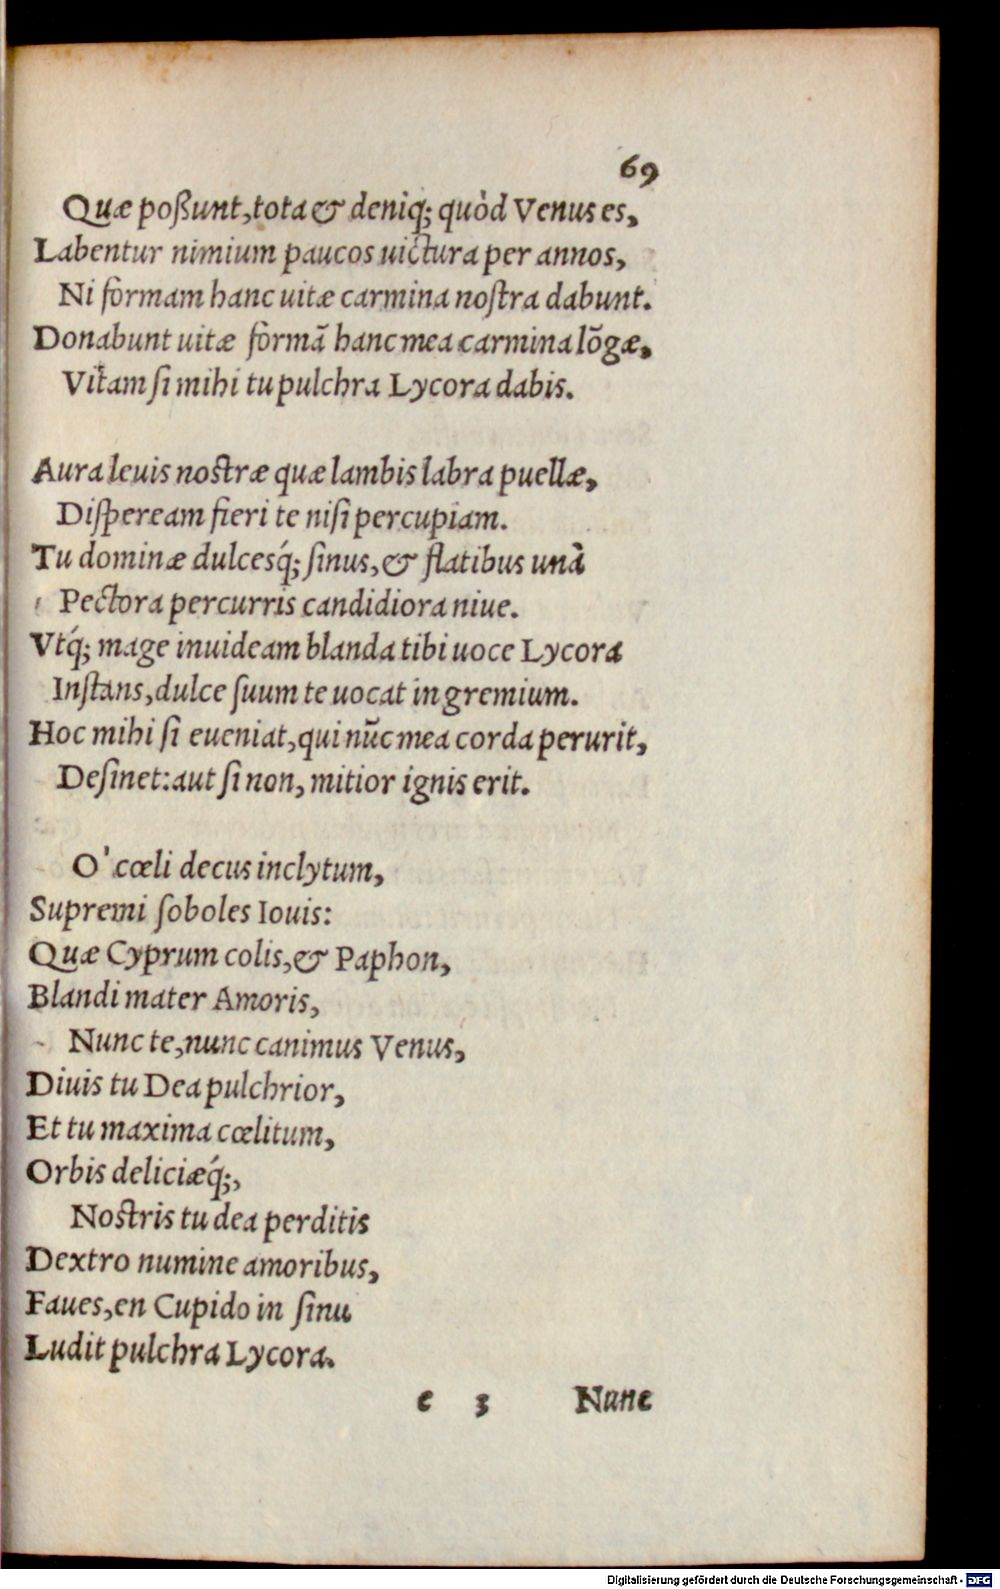 69
Quæ poßunt, tota & deniq; quòd Venus es,
Labentur nimium paucos uictura per annos,
Ni formam hanc uitæ carmina noſtra dabunt.
Donabunt uitæ formā hanc mea carmina lōgæ,
Vitam ſi mihi tu pulchra Lycora dabis.
Aura leuis nostræ quæ lambis labra puellæ,
Diſpeream fieri te niſi percupiam.
Tu dominæ dulcesq́; ſinus, & flatibus unà
Pectora percurris candidiora niue.
Vtq́; mage inuideam blanda tibi uoce Lycora
Inſtans, dulce ſuum te uocat in gremium.
Hoc mihi ſi eueniat, qui nūc mea corda perurit,
Deſinet: aut ſi non, mitior ignis erit.
O' cœli decus inclytum,
Supremi ſoboles Iouis:
Quæ Cyprum colis, & Paphon,
Blandi mater Amoris,
Nunc te, nunc canimus Venus,
Diuis tu Dea pulchrior,
Et tu maxima cœlitum,
Orbis deliciæq́;,
Nostris tu dea perditis
Dextro numine amoribus,
Faues, en Cupido in ſinu
Ludit pulchra Lycora.
e 3 Nunc
Digitalisierung gefördert durch die Deutsche Forschungsgemeinschaft - DFG